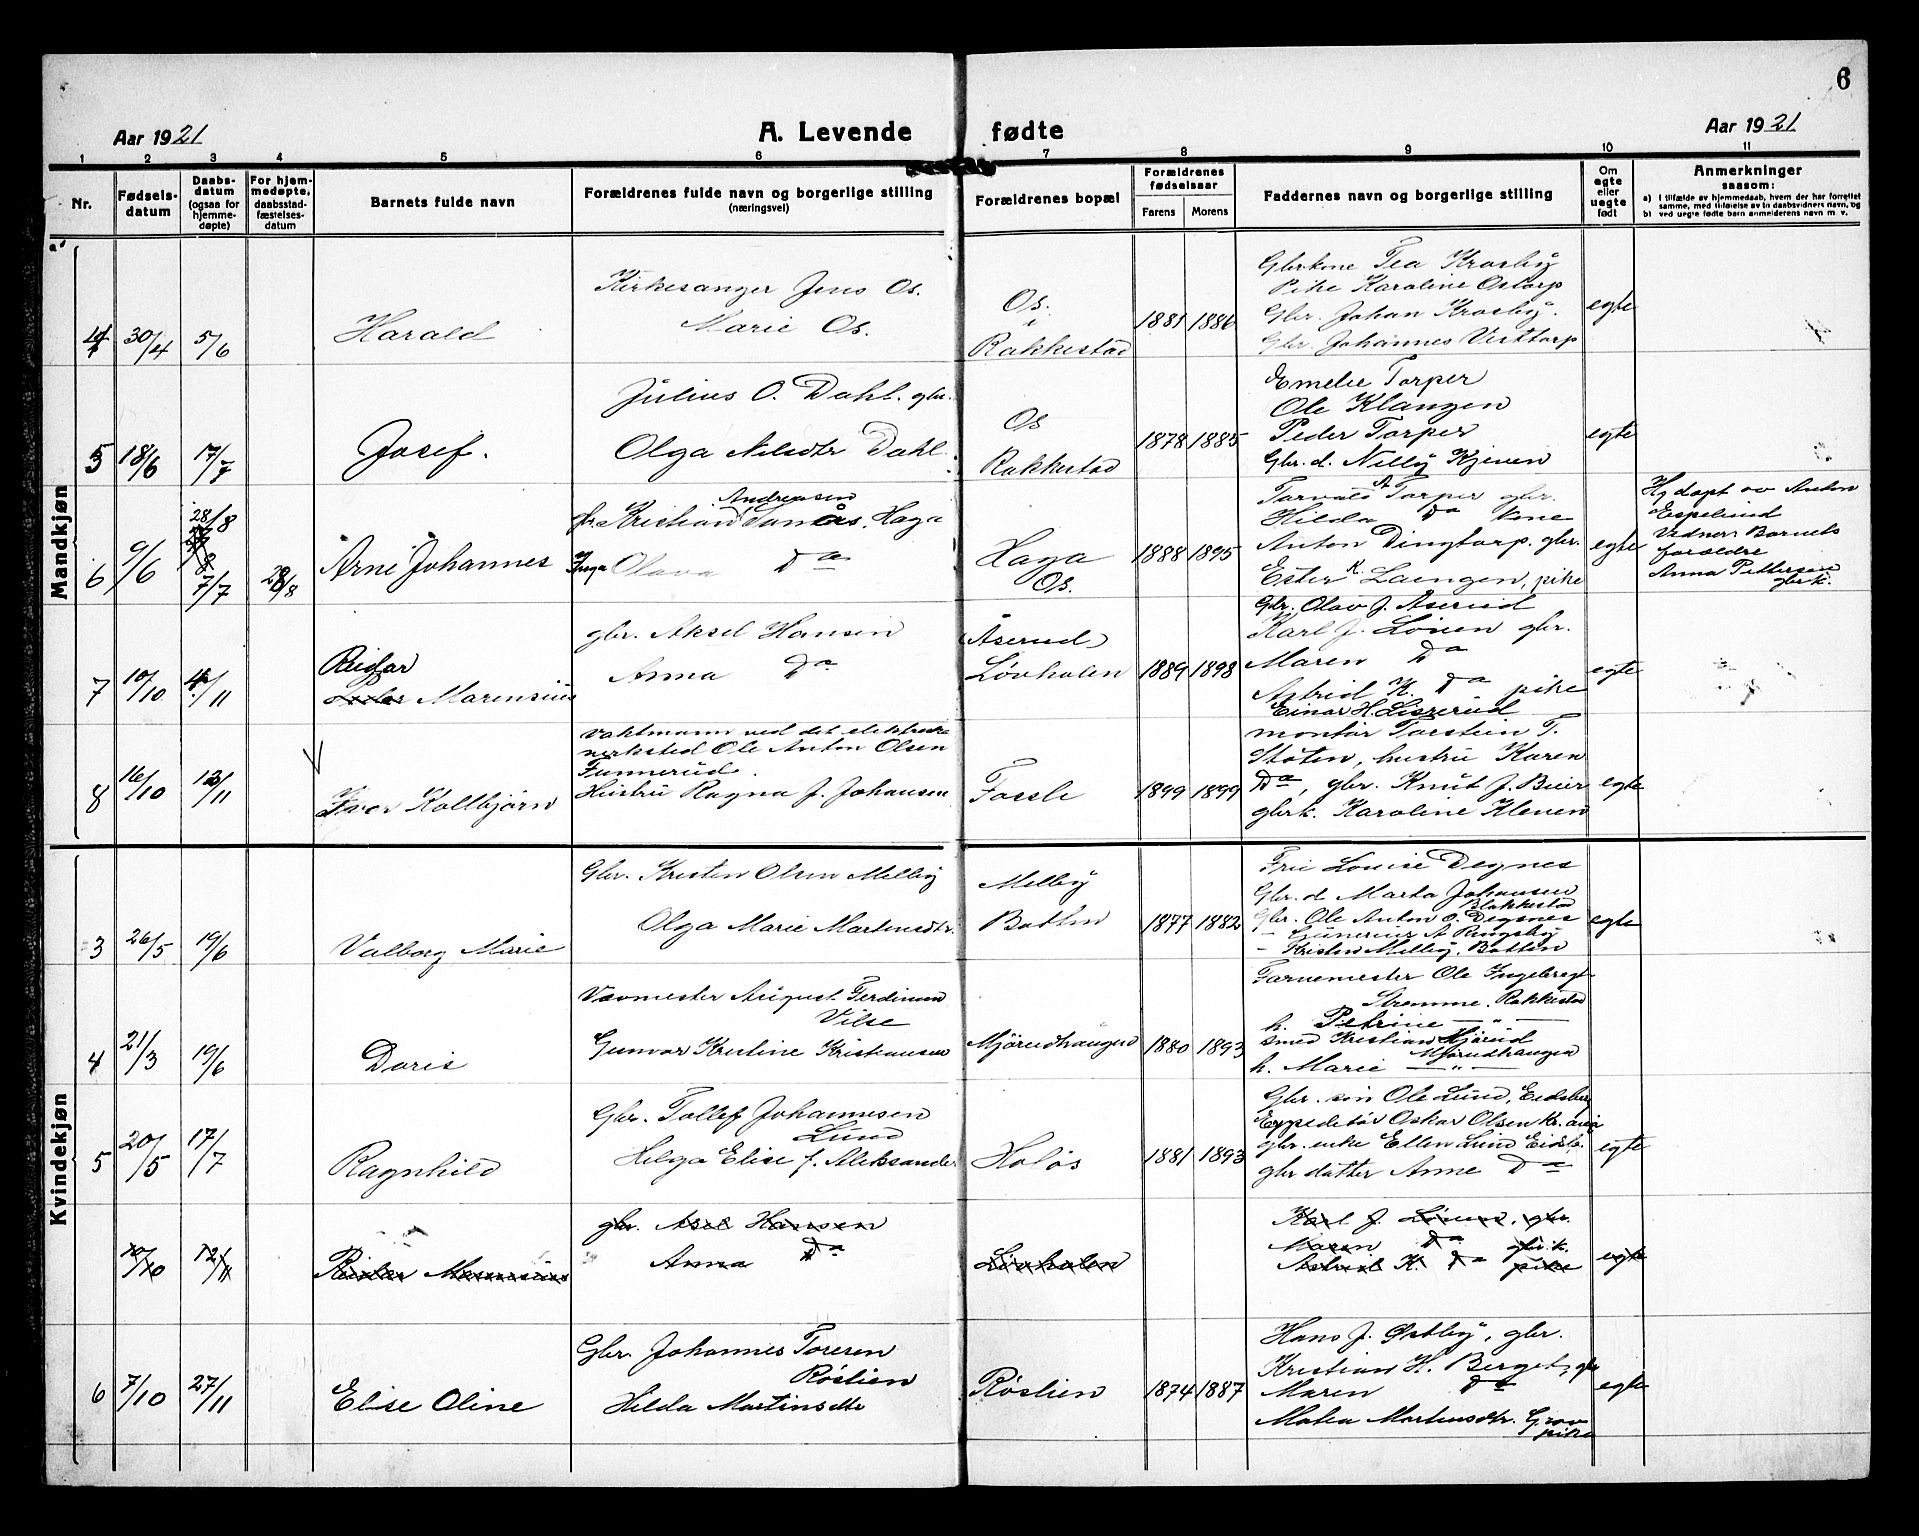 6
Aar 1921
A. Levende fødte
Aar 1921
1 2 3 4 5 6 7 8 9 10 11
Nr.
Fødsels-
datum
Daabs-
datum
(ogsaa for
hjemme-
døpte)
For hjem-
medøpte,
daabsstad-
fæstelses-
datum
Barnets fulde navn
Forældrenes fulde navn og borgerlige stilling
(næringsvei)
Forældrenes bopæl
Forældrenes
fødselsaar
Farens Morens
Faddernes navn og borgerlige stilling
Om
egte
eller
uegte
født
Anmerkninger
saasom:
a) I tilfælde av hjemmedaab, hvem der har forrettet
samme, med tilføielse av to daabsvidners navn, og
b) ved uegte fødte barn anmelderens navn m. v.
Mandkjøn
4 30/4 5/6
Harald
Kirkesanger Jens Os.
Marie Os.
Os.
i
Rakkestad
1881 1886
Gbr.kone Tea Krosby
Pike Karoline Ostorp
Gbr. Johan Krosby.
Gbr. Johannes Visttorp
egte
5 18/6 17/7
Josef.
Julius O. Dahl. gbr.
Olga Nilsdtr Dahl.
Os
Rakkestad
1878 1885
Emelie Torper
Ole Klangen
Peder Torper
Gbr. d. Nilly Kjiven
egte
6 9/6
28/8
7/7
28/8
Arne Johannes
Andreasen
Kristian Haga
Inga Olava Da
Haga
Os.
1888 1895
Torvald A Torper gbr.
Hilda Da kone
Anton Dingtorp. gbr.
Ester K. Laengen, pike
egte
Hj. døpt av Anton
Espelund
Vidner: Barnets
forældre
Anna Pettersen
gbrk.
7 10/10 11/11
Reidar
Marensius
gbr. Aksel Hansen
Anna Da
(Åserud)
Løvholen
1889 1898
Gbr. Olav J. Åserud
Karl J. Løven gbr.
Maren Da
Astrid K. Da pike
Einar H. Liszerud
egte
8 16/10 13/11
Iver Kolbjørn
Vaktmann ved det elektriske
verksted Ole Anton Olsen
Funnerud.
Hustru Ragna J. Johansen
Fossli
1899 1899
montør Torstein T.
Støten, hustru Karen
Da, gbr. Knut J. Bier
gbrk. Karoline Kleven
egte
Kvindekjøn
3 26/5 19/6
Valborg Marie
Gbr. Kristen Olsen Melby
Olga Marie Martensdtr.
Melby
Botten
1877 1882
Frie Louise Degnes
Gbr. d Marta Johansen
Blakkestad
Gbr. Ole Anton O. Degsnes
- Gunerius A Ringsby
- Kristen Melby, Botten
egte
4 21/3 19/6
Doris
Vævmester August Ferdinan
Vilse
Gunvor Kristine Kristiansen
Mjørudhaugen
1880 1893
Farvemester Ole Ingebregt-
Strømme. Rakkestad
h. Petrine — " —
Smed Kristian Mjørud
Mjørudhaugen
h. Marie — " —
5 20/5 17/7
Ragnhild
Gbr. Tollef Johannesen
Lund
Helga Elise f. Aleksander
Holøs
1881 1893
Gbr. søn Ole Lund, Eidsberg
Expeditør Oskar Olsen Kr.ania
gbr. enke Ellen Lund Eidsb.
gbr datter Anne Da
egte
10/10 12/11
Reidar Marensius
gbr. Axel Hansen
Anna Da
Løvholen
Karl J. Løven, gbr.
Maren Da gbr.k.
Astrid K. Da pike
egte
6 7/10 27/11
Elise Oline
Gbr. Johannes Toresen
Røslien
Hilda Martinsdtr
Røslien
1874 1887
Hans J. Østby, gbr.
Kristian H. Berget, gbr
Maren Da
Matea Martinsdtr. Grav
pike
egte